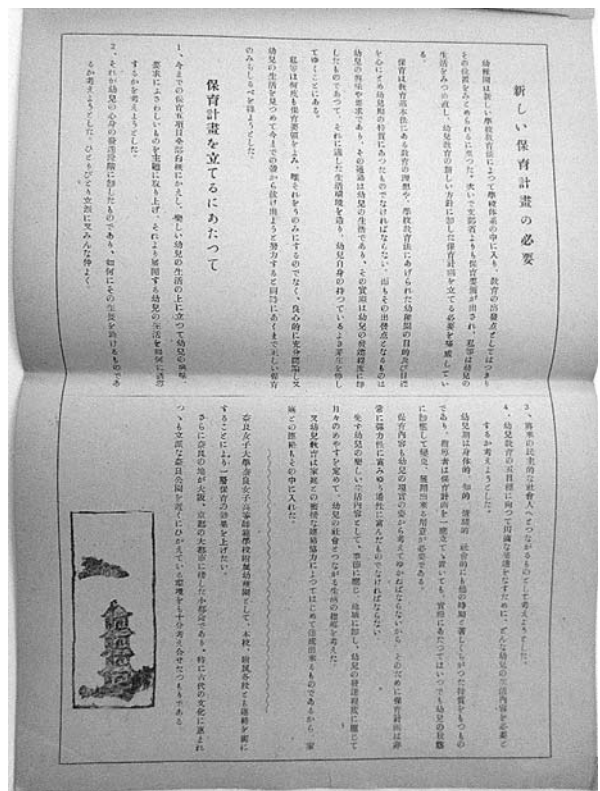 新しい保育計畫の必要
幼稚園は新しい學校教育法によつて學校体系の中に入り、教育の出發点としてはつきり
その位置をみとめられるに至つた。次いで文部省よりも保育要領が出され、私等は幼兒の
生活をみつめ直し、幼兒教育の新しい方針に即した保育計画を立てる必要を痛感してい
る。
保育は教育基本法にある教育の理想や、學校教育法にあげられた幼稚園の目的及び目標
を心にとめ幼兒期の特質にあつたものでなければならない。而もその出發点となるものは
幼兒の興味や要求であり、その通路は幼兒の生活であり、その實際は幼兒の發達程度に即
したものであつて、それに適した生活環境を造り、幼兒自身の持つているよき芽生を伸し
てゆくことにある。
私等は何度も保育要領をよみ、唯それをうのみにするのでなく、良心的に充分
幼兒の生活を見つめて今までの殻から抜け出ようと努力すると同時にあくまで正しい保育
のみちしるべを得ようとした。
保育計畫を立てるにあたつて
1、今までの保育五項目を白紙にかえし、樂しい幼兒の生活の上に立つて幼兒の興味
要求にふさわしいものを主題に取り上げ、それより展開する幼兒の生活を如何に
するかを考えようとした。
2、それが幼兒の心身の發達段階に即したものであり、如何にその生長を助けるものであ
るか考えようとした。ひとりびとり立派に又みんな仲よく。
3、將來の民主的な社會人へとつながるものとして考えようとした。
4、幼兒教育の五目標に向つて円滿な發達をなすために、どんな幼兒の生活内容を必要と
するか考えようとした。
幼兒期は身体的、知的、情緒的、社會的にも他の時期と著しくちがつた特質をもつもの
であり、指導者は保育計画を一應立てゝ置いても、實際にあたつてはいつでも幼兒の狀態
に即應して變更、展開出來る用意が必要である。
保育内容も幼兒の現實の姿から考えてゆかねばならないから、そのために保育計画は非
常に彈力性に富みゆう通性に富んだものでなければならない。
先ず幼兒の樂しい生活内容として、季節に應じ、地域に即し、幼兒の發達程度に應じて
月々のめやすを定めて、幼兒の社會とつながる生活の指導を考えた。
又幼兒教育は家庭との密接な連絡協力によつてはじめて達成出來るものであるから、家
庭との連絡もその中に入れた。
奈良女子大學奈良女子高等師範學校附属幼稚園として、本校、附属各校とも連絡を密に
することにより一層保育の効果を上げたい。
さらに奈良の地が大阪、京都の大都市に接した小都會であり、特に古代の文化に惠まれ
つゝも立派な奈良公園を近くにひかえている環境をも十分考え合せたつもりである